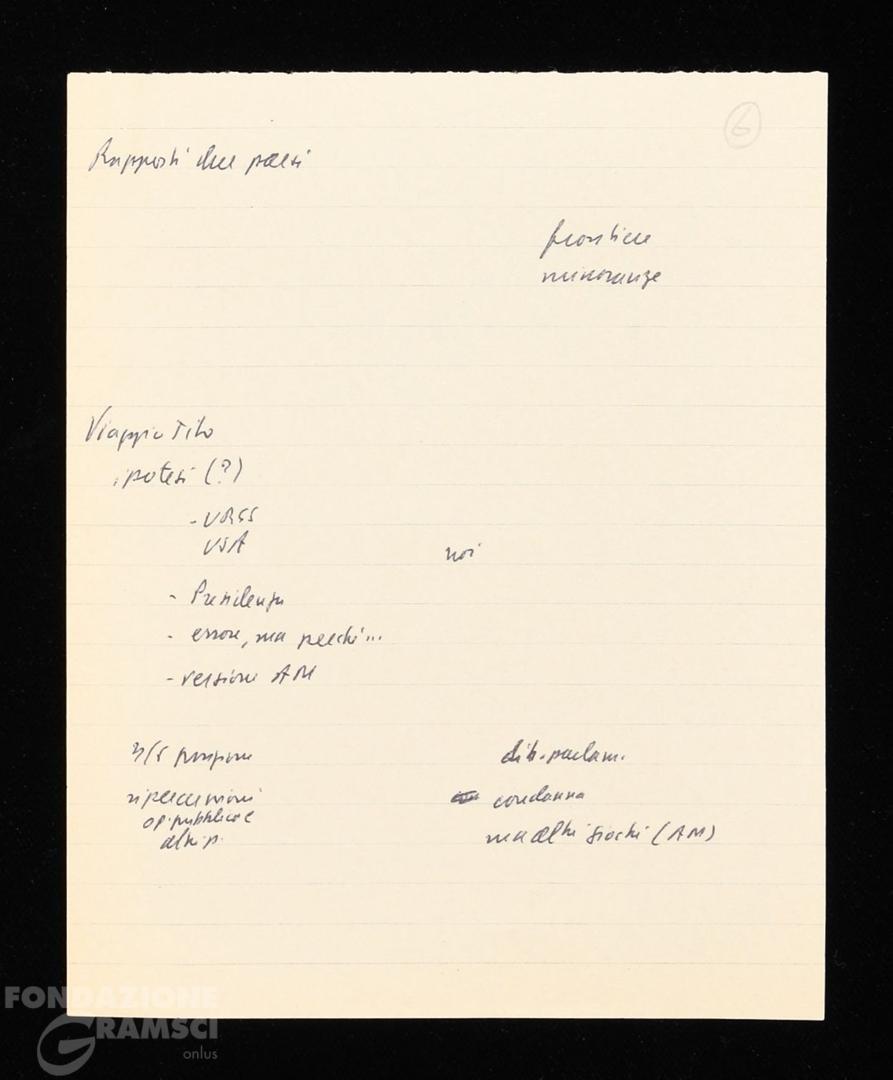 6
Rapporti due paesi
frontiere
minoranze
Viaggio Tito
ipotesi (?)
- URSS
USA
noi
- Presidenza
- errore, ma perché...
- versione AM
dib. parlam.
ripercussioni
condanna
op. pubblica e
altri p.
ma altri giochi (AM)
FONDAZIONE
GRAMSCI
onlus